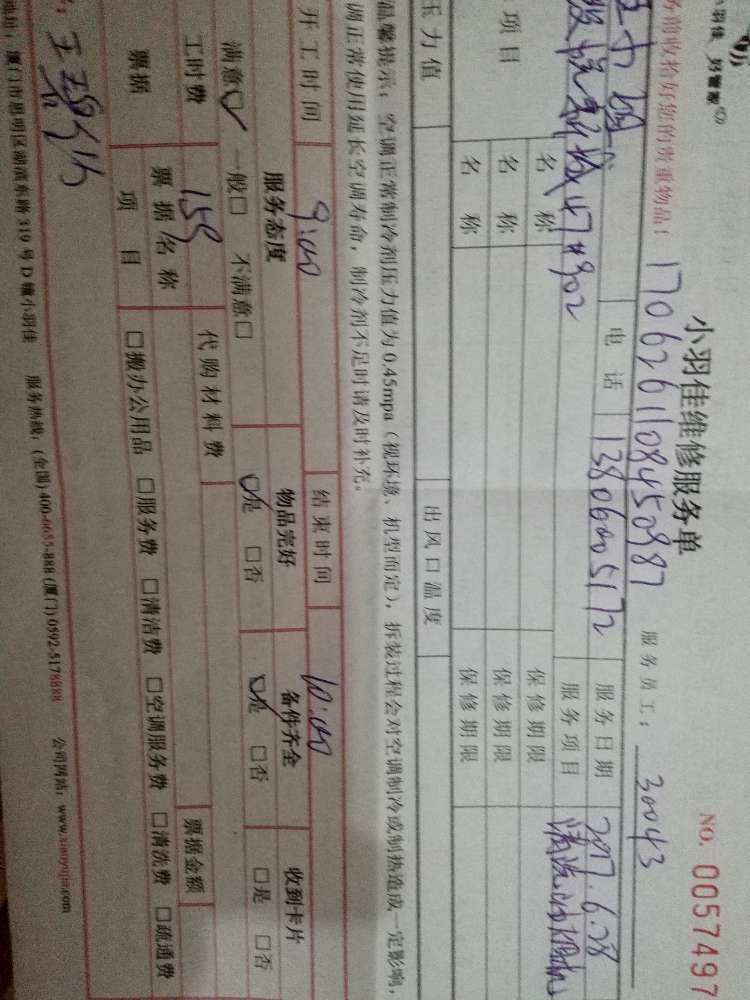 小羽佳维修服务单
NO. 0057497
务前收拾好您的贵重物品：
1706261108450987
服务员工：30043
电话
13806005172
服务日期
2017.6.28
47#902
服务项目
项目
名称
保修期限
名称
保修期限
名称
保修期限
压力值
出风口温度
温馨提示：空调正常制冷剂压力值为0.45mpa（视环境、机型而定），拆装过程会对空调制冷或制热造成一定影响，
调正常使用延长空调寿命，制冷剂不足时请及时补充。
开工时间
9:00
结束时间
10:00
服务态度
物品完好
备件齐全
收到卡片
满意☑ 一般□ 不满意□
☑是 □否
☑是 □否
□是 □否
工时费
155
代购材料费
票据
票据名称
票据金额
项目
□搬办公用品 □服务费 □清洁费 □空调服务费 □清洗费 □疏通费
地址：厦门市思明区湖滨东路319号D幢小羽佳 服务热线：(全国)400-6655-888 (厦门)0592-5178888 公司网站：www.xiaoyujia.com